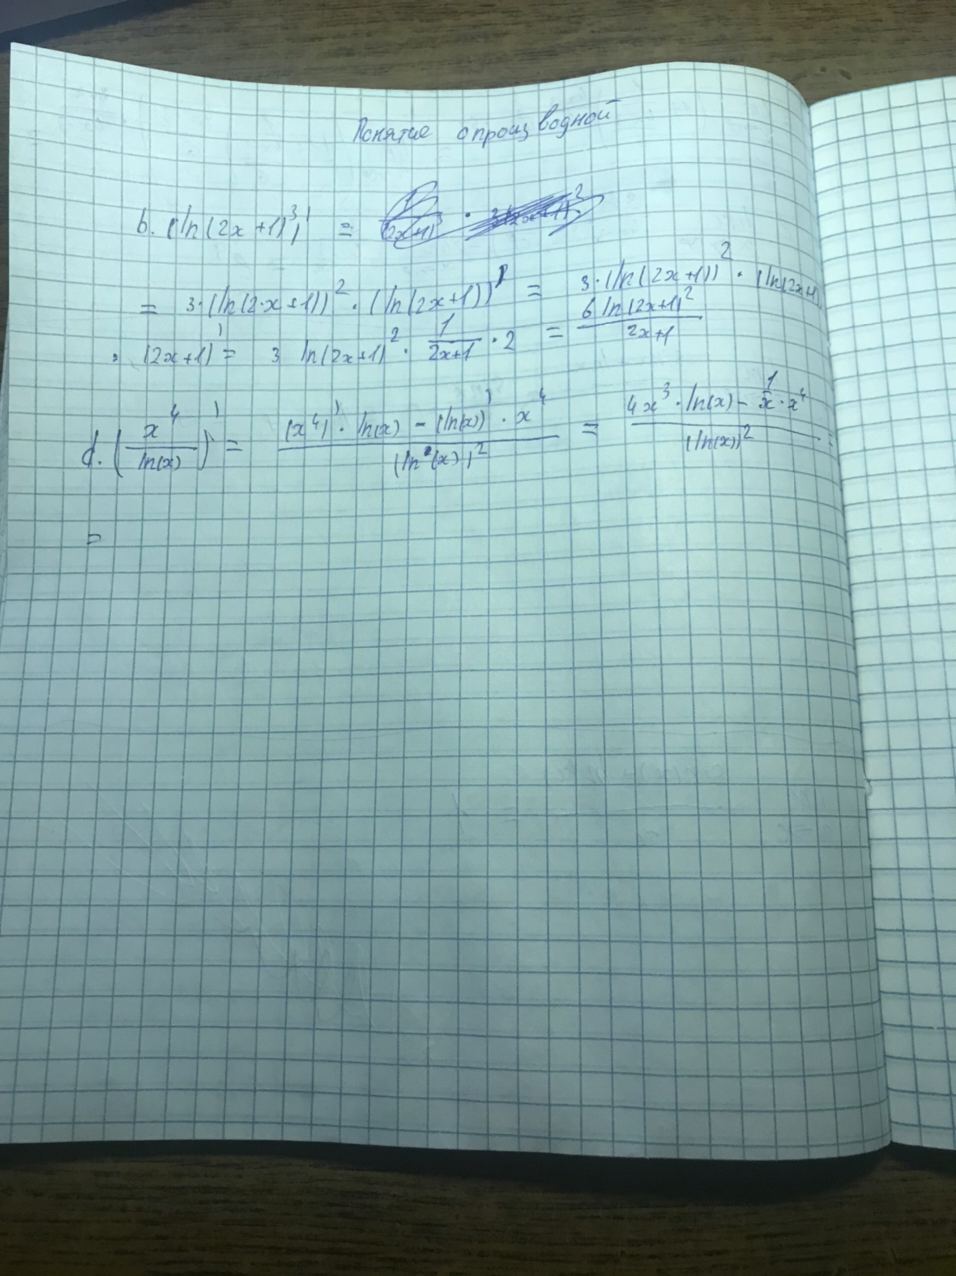 Понятие о производной
b. (ln(2x+1)³)' =
= 3·(ln(2·x+1))²·(ln(2x+1))' = 3·(ln(2x+1))²·(ln(2x+1)
· (2x+1)' = 3 ln(2x+1)² · 1/(2x+1) · 2 = 6 ln(2x+1)²/(2x+1)
d. (x⁴/ln(x))' = ((x⁴)'·ln(x) - (ln(x))'·x⁴)/(ln²(x))² = (4x³·ln(x) - 1/x·x⁴)/(ln(x))² =
=